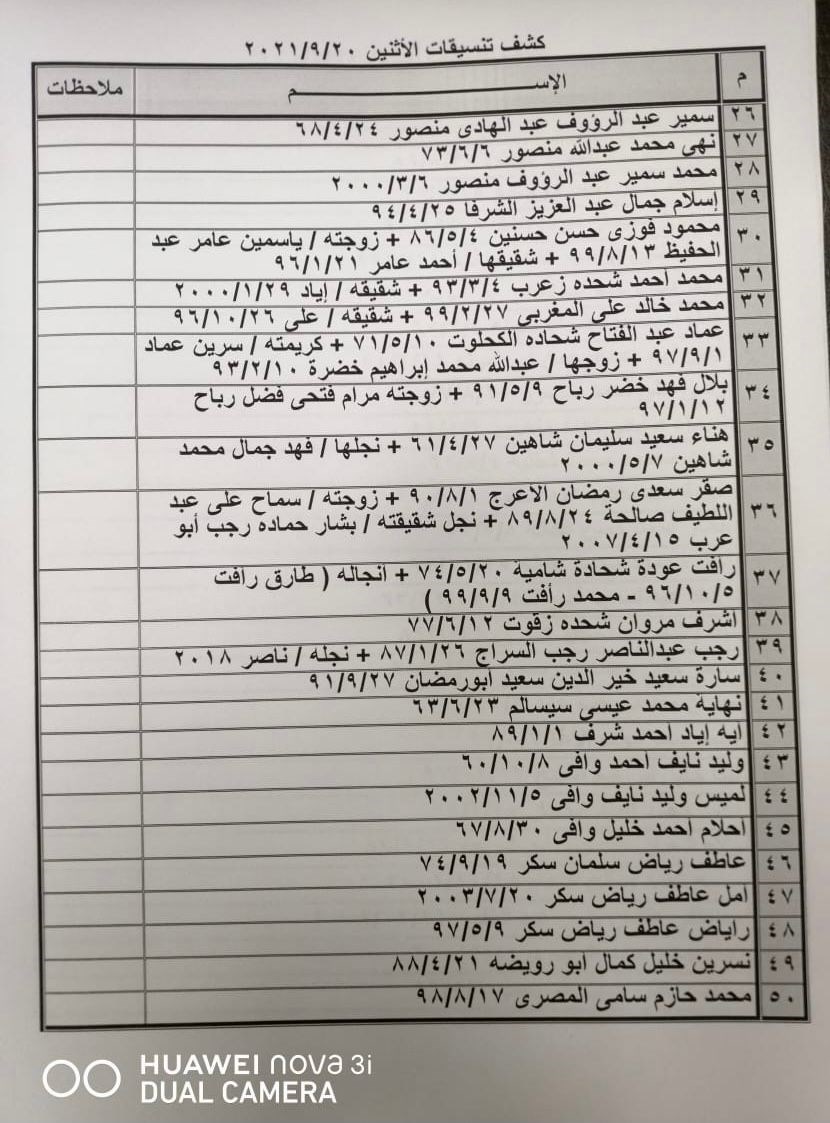 كشف تنسيقات الأثنين ٢٠٢١/٩/٢٠
م الإســــــــــم ملاحظات
٢٦ سمير عبد الرؤوف عبد الهادى منصور ٦٨/٤/٢٤
٢٧ نهى محمد عبدالله منصور ٧٣/٦/٦
٢٨ محمد سمير عبد الرؤوف منصور ٢٠٠٠/٣/٦
٢٩ إسلام جمال عبد العزيز الشرفا ٩٤/٤/٢٥
٣٠ محمود فوزى حسن حسنين ٨٦/٥/٤ + زوجته / ياسمين عامر عبد
الحفيظ ٩٩/٨/١٣ + شقيقها / أحمد عامر ٩٦/١/٢١
٣١ محمد أحمد شحده زعرب ٩٣/٣/٤ + شقيقه / إياد ٢٠٠٠/١/٢٩
٣٢ محمد خالد على المغربى ٩٩/٢/٢٧ + شقيقه / على ٩٦/١٠/٢٦
٣٣ عماد عبد الفتاح شحاده الكحلوت ٧١/٥/١٠ + كريمته / سرين عماد
٩٧/٩/١ + زوجها / عبدالله محمد إبراهيم خضرة ٩٣/٢/١٠
٣٤ بلال فهد خضر رباح ٩١/٥/٩ + زوجته مرام فتحى فضل رباح
٩٧/١/١٢
٣٥ هناء سعيد سليمان شاهين ٦١/٤/٢٧ + نجلها / فهد جمال محمد
شاهين ٢٠٠٠/٥/٧
٣٦ صقر سعدى رمضان الاعرج ٩٠/٨/١ + زوجته / سماح على عبد
اللطيف صالحة ٨٩/٨/٢٤ + نجل شقيقته / بشار حماده رجب أبو
عرب ٢٠٠٧/٤/١٥
٣٧ رأفت عودة شحادة شامية ٧٤/٥/٢٠ + أنجاله ( طارق رأفت
٩٦/١٠/٥ - محمد رأفت ٩٩/٩/٩ )
٣٨ اشرف مروان شحده زقوت ٧٧/٦/١٢
٣٩ رجب عبدالناصر رجب السراج ٨٧/١/٢٦ + نجله / ناصر ٢٠١٨
٤٠ سارة سعيد خير الدين سعيد ابورمضان ٩١/٩/٢٧
٤١ نهاية محمد عيسى سيسالم ٦٣/٦/٢٣
٤٢ ايه إياد احمد شرف ٨٩/١/١
٤٣ وليد نايف احمد وافى ٦٠/١٠/٨
٤٤ لميس وليد نايف وافى ٢٠٠٢/١١/٥
٤٥ احلام احمد خليل وافى ٦٧/٨/٣٠
٤٦ عاطف رياض سلمان سكر ٧٤/٩/١٩
٤٧ امل عاطف رياض سكر ٢٠٠٣/٧/٢٠
٤٨ راياض عاطف رياض سكر ٩٧/٥/٩
٤٩ نسرين خليل كمال ابو رويضه ٨٨/٤/٢١
٥٠ محمد حازم سامى المصرى ٩٨/٨/١٧
HUAWEI nova 3i
DUAL CAMERA